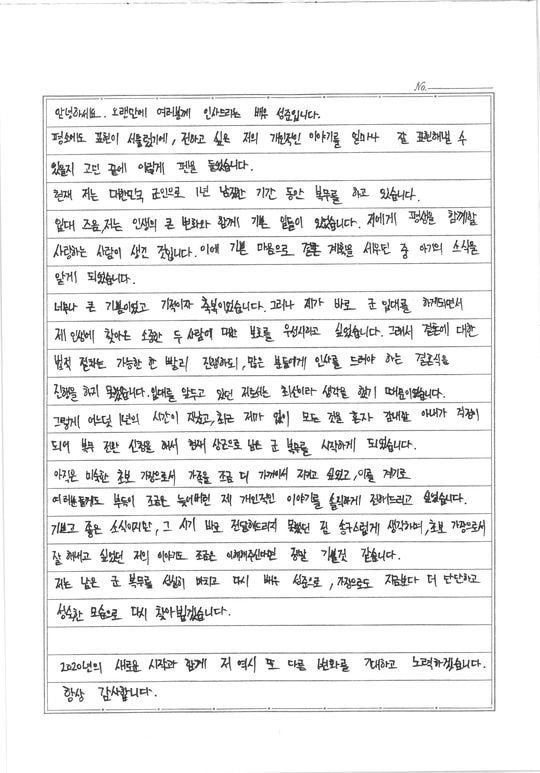 No.
안녕하세요. 오랜만에 여러분께 인사드리는 배우 성준입니다.
평소에도 표현이 서툴렀기에, 전하고 싶은 저의 개인적인 이야기를 얼마나 잘 표현해낼 수
있을지 고민 끝에 이렇게 펜을 들었습니다.
현재 저는 대한민국 군인으로 1년 남짓한 기간 동안 복무를 하고 있습니다.
입대 즈음, 저는 인생의 큰 변화와 함께 기쁜 일들이 있었습니다. 저에게 평생을 함께할
사랑하는 사람이 생긴 것입니다. 이에 기쁜 마음으로 결혼 계획을 세우던 중 아기의 소식을
알게 되었습니다.
너무나 큰 기쁨이었고 기적이자 축복이었습니다. 그러나 제가 바로 군 입대를 하게되면서
제 인생에 찾아온 소중한 두 사람에 대한 보호를 우선시하고 싶었습니다. 그래서 결혼에 대한
법적 절차는 가능한 한 빨리 진행하되, 많은 분들에게 인사를 드려야 하는 결혼식을
진행을 하지 못했습니다. 입대를 앞두고 있던 저로서는 최선이라 생각을 했기 때문이었습니다.
그렇게 어느덧 1년의 시간이 지났고, 최근 저마저 없이 모든 것을 혼자 감내할 아내가 걱정이
되어 복무 전환 신청을 해서 현재 상근으로 남은 군 복무를 시작하게 되었습니다.
아직은 미숙한 초보 가장으로서 가족을 조금 더 가까이서 지키고 싶었고, 이를 계기로
여러분들께도 부득이 조금은 늦어버린 제 개인적인 이야기를 솔직하게 전해드리고 싶었습니다.
기쁘고 좋은 소식이지만, 그 시기 바로 전달해드리지 못했던 점 송구스럽게 생각하며, 초보 가장으로서
잘 해내고 싶었던 저의 이야기도 조금은 이해해주신다면 정말 기쁠것 같습니다.
저는 남은 군 복무를 성실히 마치고 다시 배우 성준으로, 가장으로도 지금보다 더 단단하고
성숙한 모습으로 다시 찾아뵙겠습니다.
2020년의 새로운 시작과 함께 저 역시 또 다를 변화를 기대하고 노력하겠습니다.
항상 감사합니다.